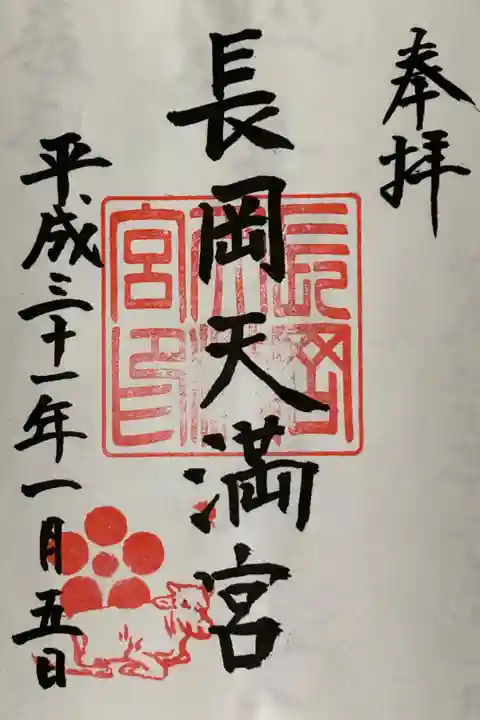 奉拝
長岡天満宮
長岡天満宮印
平成三十一年一月五日